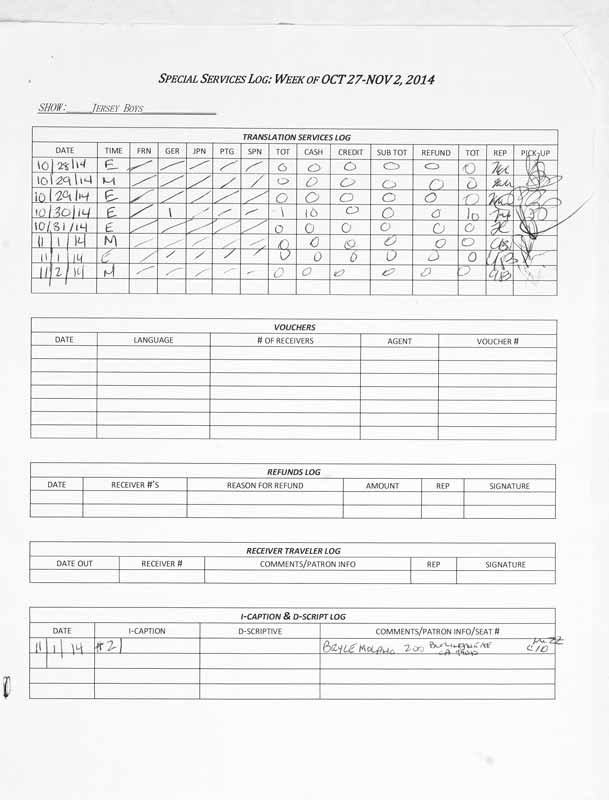 SPECIAL SERVICES LOG: WEEK OF OCT 27-NOV 2, 2014
SHOW: JERSEY BOYS
TRANSLATION SERVICES LOG
DATE TIME FRN GER JPN PTG SPN TOT CASH CREDIT SUB TOT REFUND TOT REP PICK-UP
10/28/14 E / / / / / 0 0 0 0 0 0
10/29/14 M / / / / / 0 0 0 0 0 0
10/29/14 E / / / / / 0 0 0 0 0 0
10/30/14 E / 1 / / / 1 10 0 0 0 10
10/31/14 E / / / / / 0 0 0 0 0 0
11/1/14 M / / / / / 0 0 0 0 0 0
11/1/14 E / / / / / 0 0 0 0 0 0
11/2/14 M / / / / / 0 0 0 0 0 0
VOUCHERS
DATE LANGUAGE # OF RECEIVERS AGENT VOUCHER #
REFUNDS LOG
DATE RECEIVER #'S REASON FOR REFUND AMOUNT REP SIGNATURE
RECEIVER TRAVELER LOG
DATE OUT RECEIVER # COMMENTS/PATRON INFO REP SIGNATURE
I-CAPTION & D-SCRIPT LOG
DATE I-CAPTION D-SCRIPTIVE COMMENTS/PATRON INFO/SEAT #
11/1/14 #21 BRYLE MOLANO 200 CA